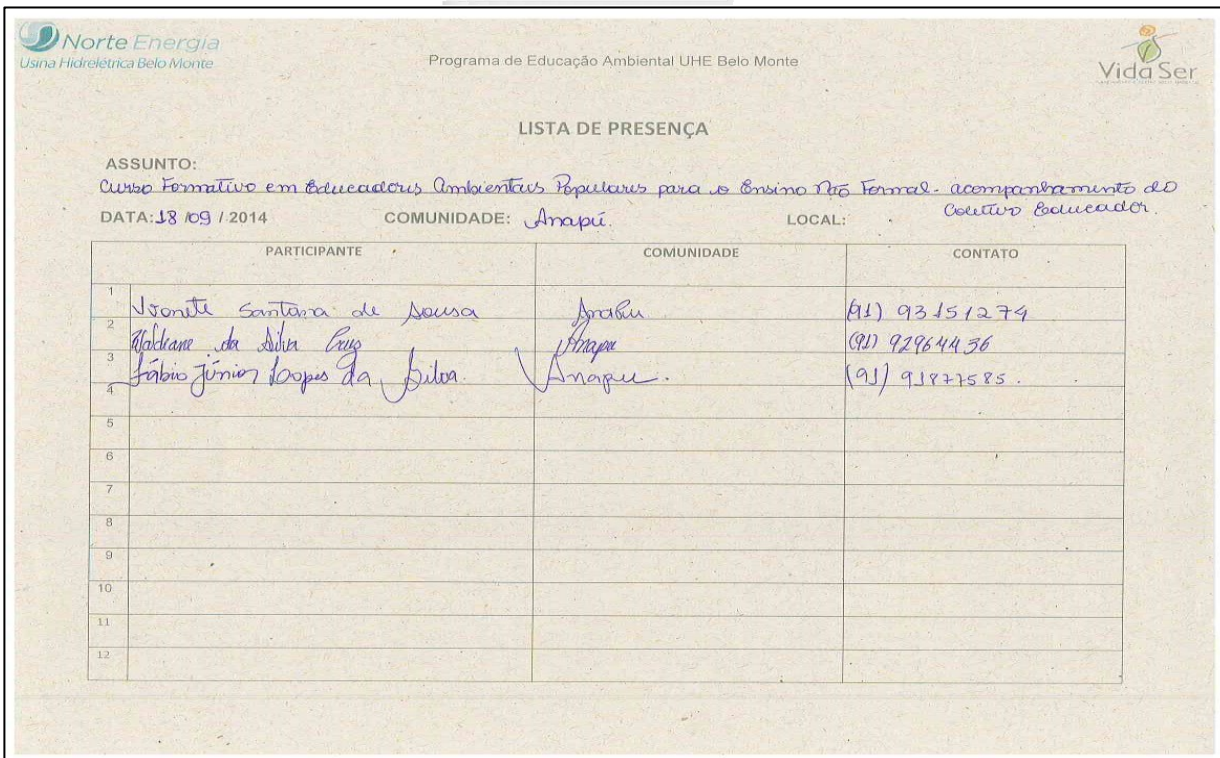 Norte Energia
Usina Hidrelétrica Belo Monte
Programa de Educação Ambiental UHE Belo Monte
Vida Ser
LISTA DE PRESENÇA
ASSUNTO:
Curso Formativo em Educadores Ambientais Populares para o Ensino Não Formal - acompanhamento do
Coletivo Educador.
DATA: 18/09/2014 COMUNIDADE: Anapú. LOCAL:
PARTICIPANTE COMUNIDADE CONTATO
1 Santana de Sousa Anapu (91) 93151274
2 da Silva Cruz Anapu (91) 92964436
3 Fábio Júnior Lopes da Silva. Anapu. (91) 91877585.
4
5
6
7
8
9
10
11
12